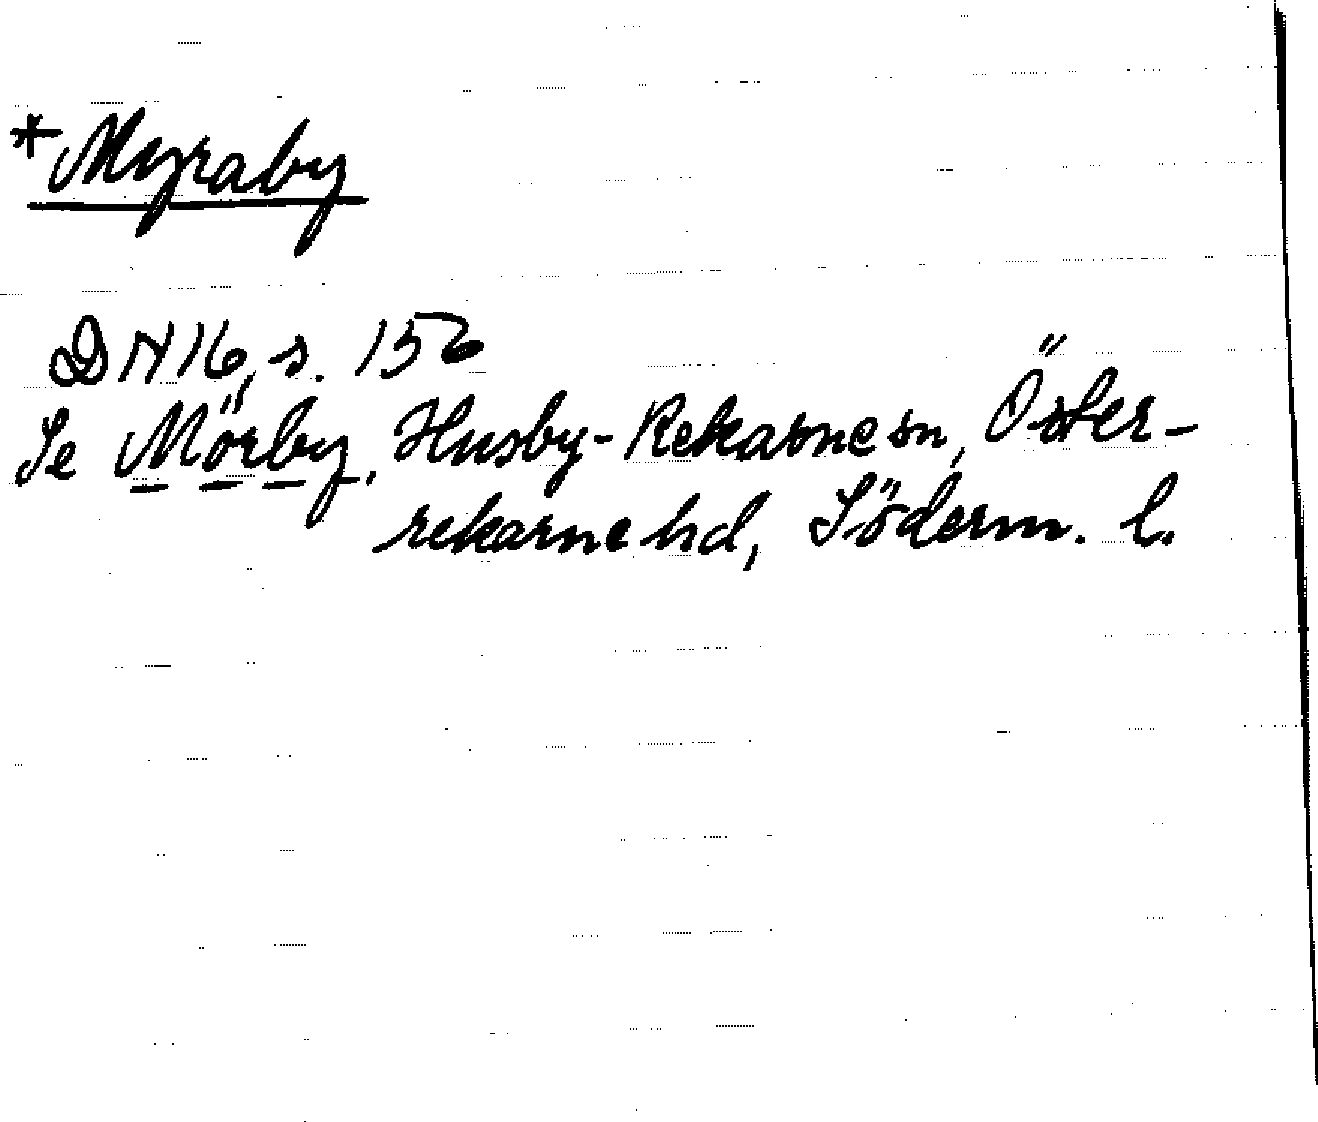 *Myraby
DN 16, s. 156
Se Mörby, Husby-Rekarne sn, Öster-
rekarne hd, Söderm. l.